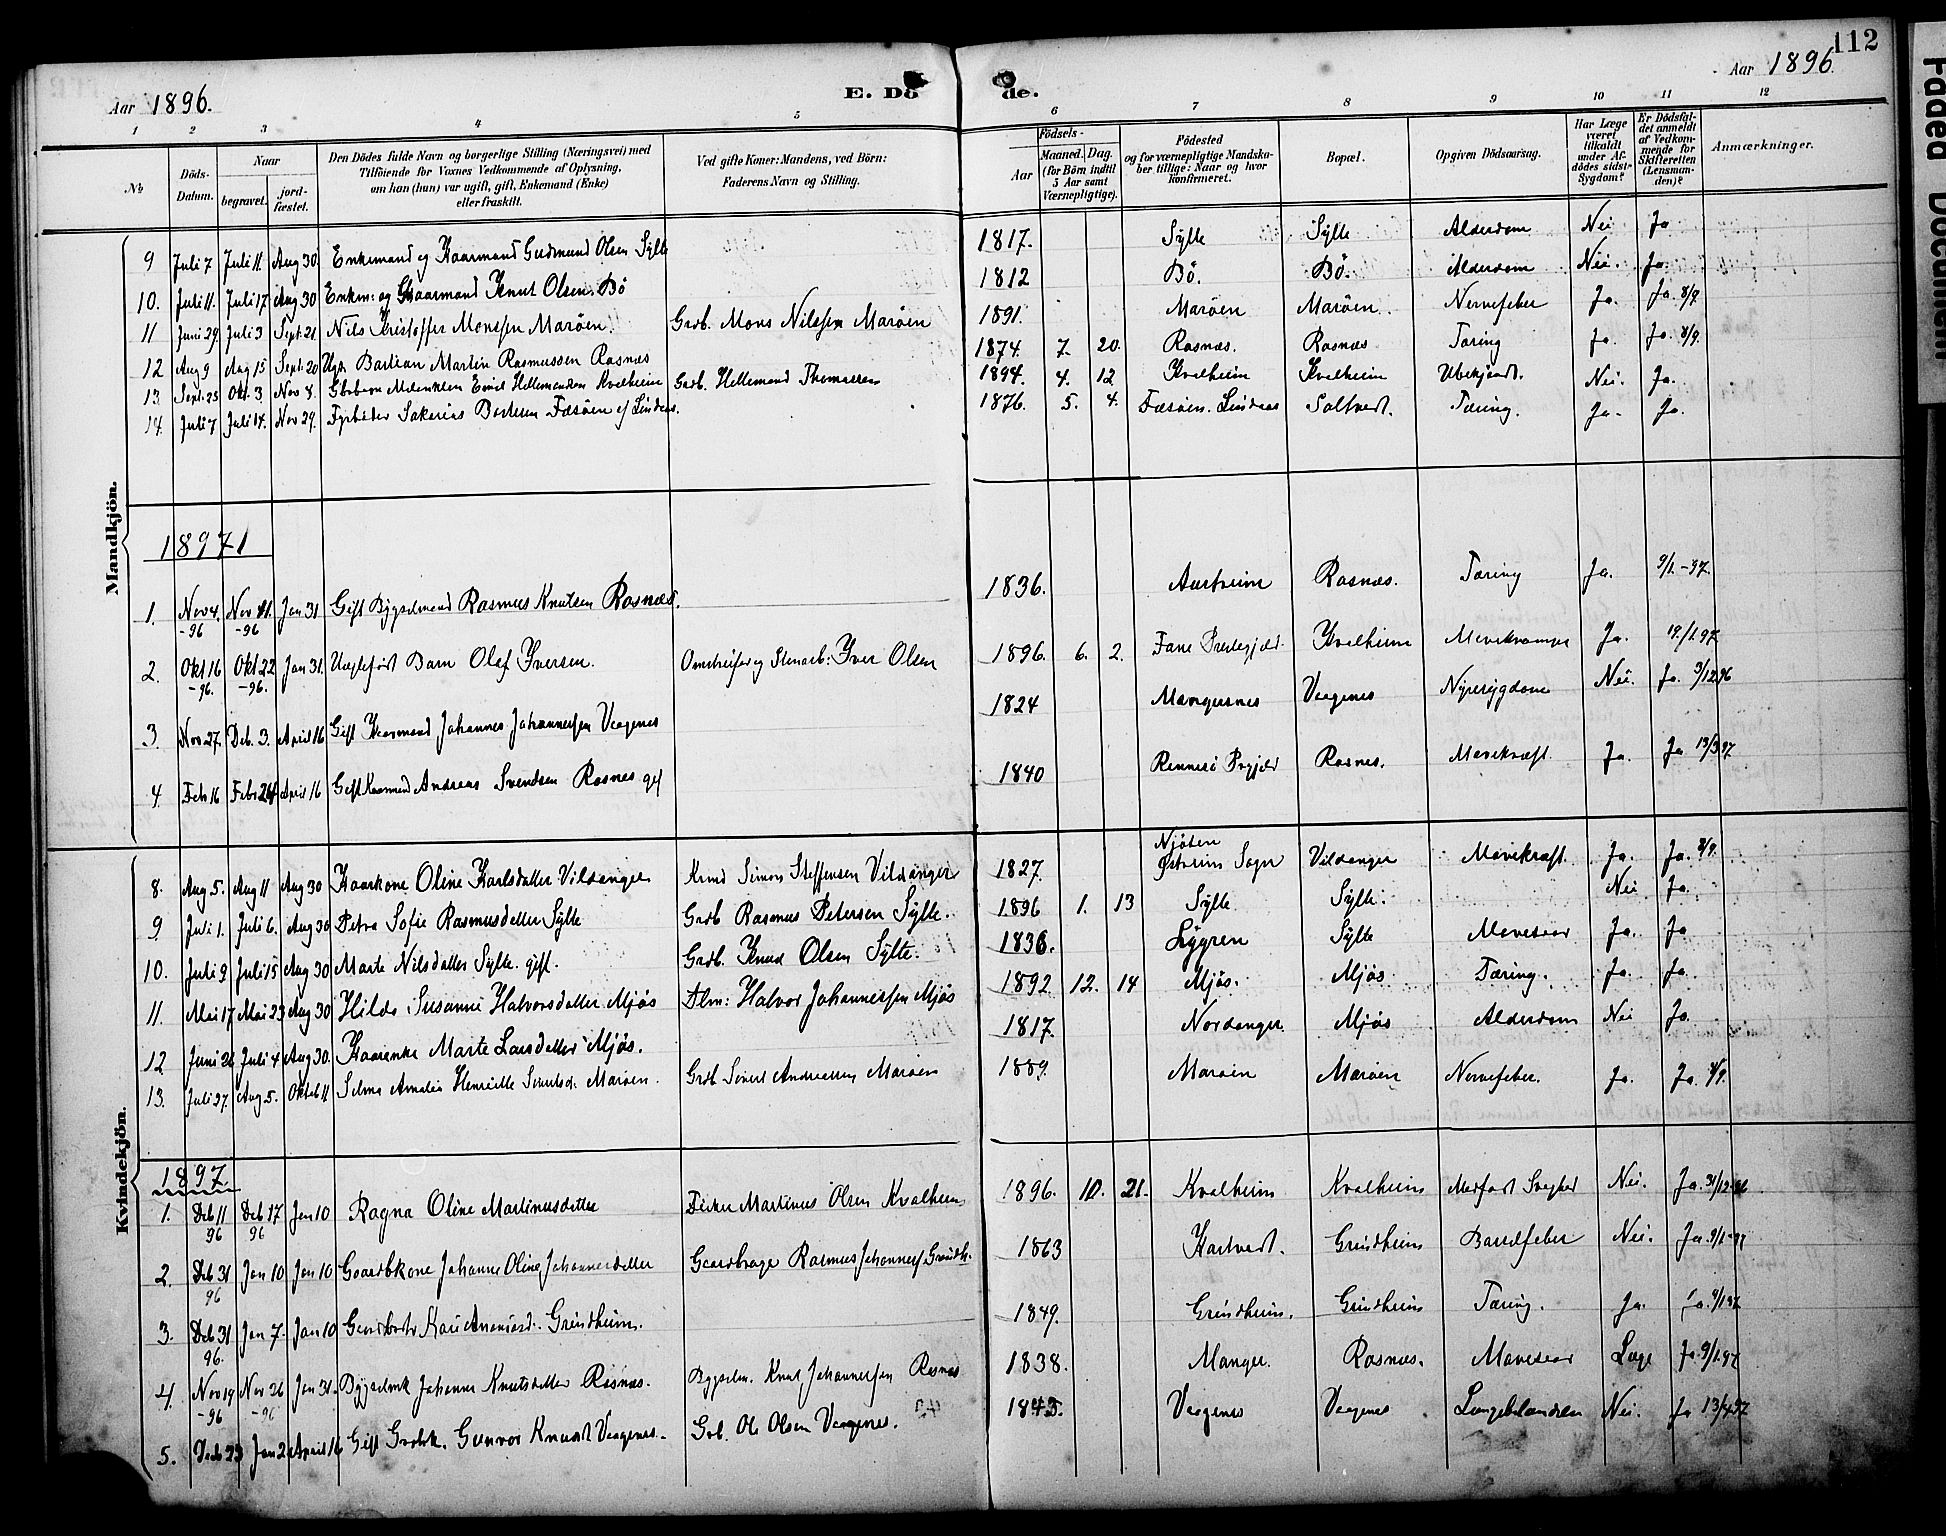 112
Aar 1896.
E. Dö de.
Aar 1896
1 2 3 4 5 6 7 8 9 10 11 12
№ Döds-Datum. Naar begravet. jord-fæstet. Den Dödes fulde Navn og borgerlige Stilling (Næringsvei) med Tilföiende for Voxnes Vedkommende af Oplysning, om han (hun) var ugift, gift, Enkemand (Enke) eller fraskilt. Ved gifte Koner: Mandens, ved Börn: Faderens Navn og Stilling. Aar Födsels- Maaned. Dag. (for Börn indtil 5 Aar samt Værnepligtige). Födested og for værnepligtige Mandskaber tillige: Naar og hvor konfirmeret. Bopæl. Opgiven Dödsaarsag. Har Læge været tilkaldt under Afdödes sidste Sygdom? Er Dödsfaldet anmeldt af Vedkommende for Skifteretten (Lensmanden)? Anmærkninger.
Mandkjön.
9 Juli 7 Juli 11. Aug 30. Enkemand og Kaarmand Gudmund Olsen Sylte 1817. Sylte Sylte Alderdom Nei Ja
10. Juli 11. Juli 17 Aug 30 Enkem: og Kaarmand Knut Olsen Bö 1812 Bö. Bö. Alderdom Nei. Ja.
11 Juni 29. Juli 3 Sept. 21. Nils Kristoffer Monssen Maröen. Grdb. Mons Nilssen Maröen 1891. Maröen Maröen Nervefeber Ja. Ja. 8/9.
12 Aug 9 Aug 15 Sept. 20 Ugft Bastian Martin Rasmussen Rosnæs 1874. 7. 20. Rosnæs. Rosnæs Tæring Ja. Ja. 8/9.
13. Sept. 25 Okt. 3. Nov 8. Emil Hellemundsen Kvalheim Grdb. Hellemund Thomassen 1894. 4. 12 Kvalheim Kvalheim Ubekjendt. Nei. Ja.
14. Juli 7 Juli 14. Nov 29. Sakarias Fæsöen af Lindaas. 1876. 5. 4. Fæsöen. Lindaas Soltvedt. Tæring. Ja. Ja.
1897
1. Nov 4. -96 Nov 11. -96 Jan 31 Gift Bygselmand Rasmus Knutsen Rosnæs. 1836. Austreim Rosnæs. Tæring Ja. 9/1.-97.
2. Okt 16 -96. Okt 22 -96. Jan 31. Uægtefödt Barn Olaf Iversen. Omstreifer og Stenarb: Iver Olsen 1896. 6. 2. Fane Kvalheim Mavekrampe Ja. 19/1.97
3. Nov 27. Deb. 3. April 16 Gift Kaarmand Johannes Johannessen Vaagenes 1824 Mangersnes Vaagenes Nyresygdom Nei. Ja. 3/12 96
4. Feb 16 Febr 24 April 16 Gift Kaarmand Andreas Svendsen Rosnes gif 1840 Rennesö Rosnes. Mavekræft Ja. Ja 13/3 97
Kvindekjön.
8. Aug 5. Aug 11 Aug 30 Kaarkone Oline Karlsdatter Vildanger Krmd Simon Steffensen Vildanger 1827. Njöten Østreim Sogn Vildanger Mavekræft. Ja. Ja. 8/9.
9. Juli 1. Juli 6. Aug 30 Petra Sofie Rasmusdatter Sylte Grdb Rasmus Petersen Sylte. 1896 1. 13 Sylte Sylte. Nei Ja.
10. Juli 9 Juli 15 Aug 30 Marte Nilsdatter Sylte. gift. Grdb. Knud Olsen Sylte. 1836. Lygren Sylte Mavesaar Ja. Ja
11. Mai 17 Mai 23 Aug 30 Hilda Susanne Halvorsdatter Mjös Alm: Halvor Johannessen Mjös 1892 12. 14 Mjös. Mjös Tæring. Ja Ja.
12 Juni 26 Juli 4 Aug 30. Kaarenke Marte Larsdatter Mjös. 1817. Nordanger. Mjös Alderdom Nei Ja.
13. Juli 27. Aug 5. Oktob 11 Selma Amalia Henriette Sivertsd. Maröen. Grdb Sivert Andreassen Maröen 1889. Maröen Maröen Nervefeber. Ja. Ja.
1897
1. Deb 11 96 Deb 17 96 Jan 10 Ragna Oline Martinusdatter Fisker Martinus Olsen Kvalheim 1896. 10. 21. Kvalheim Kvalheim Medfödt Svaghed Nei. Ja. 31/12-96
2. Deb 31 96 Jan 10 Jan 10 Gaardbkone Johanne Oline Johannesdatter Gaardbruge Rasmus Johannes Grindh. 1863 Hartvedt. Grindheim Barselfeber Nei. Ja. 9/1-97
3. Deb 31 96. Jan 7. Jan 10 Kari Grindheim. 1849. Grindheim. Grindheim Tæring. Ja. Ja. 9/1 97
4. Nov 19 -96 Nov 26 -96 Jan 31. Johanne Knutsdatter Rosnæs. Bygselm. Knut Johannessen Rosnes 1838. Manger. Rosnæs. Mavesaar Læge Ja. 9/1 97
5. Deb 23 Jan 2 April 16 Gift Grdbk. Gunvor Knudsd Vaagenes. Grb. Ole Olsen Vaagenes. 1843. Vaagenes Vaagenes Nei. Ja 13/4 97
Faded Document